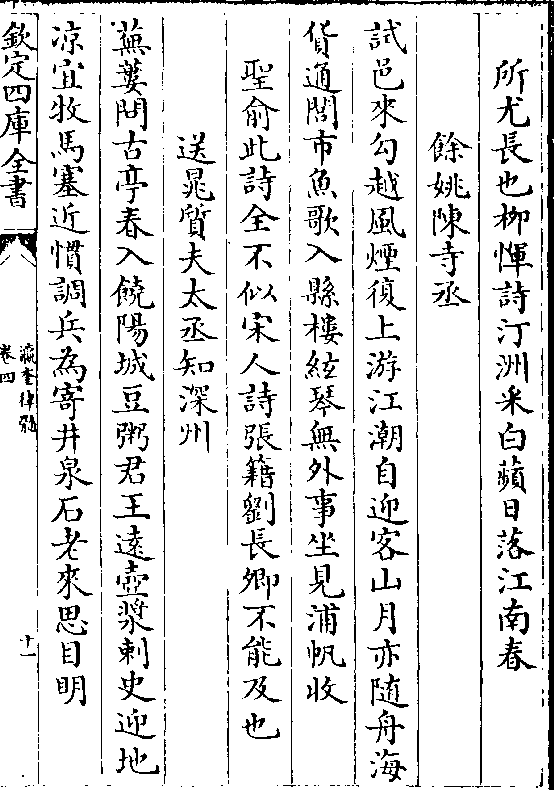 所尤長也柳惲詩汀洲采白蘋日落江南春
餘姚陳寺丞
試邑來勾越風煙復上游江潮自迎客山月亦隨舟海
貨通閭市魚歌入縣樓絃琴無外事坐見浦帆收
聖俞此詩全不似宋人詩張籍劉長卿不能及也
送晁質夫太丞知深州
蕪蔞問古亭春入饒陽城豆粥君王遠壺漿刺史迎地
凉宜牧馬塞近慣調兵為寄井泉石老來思目明
欽定四庫全書
瀛奎律髓
卷四
十一